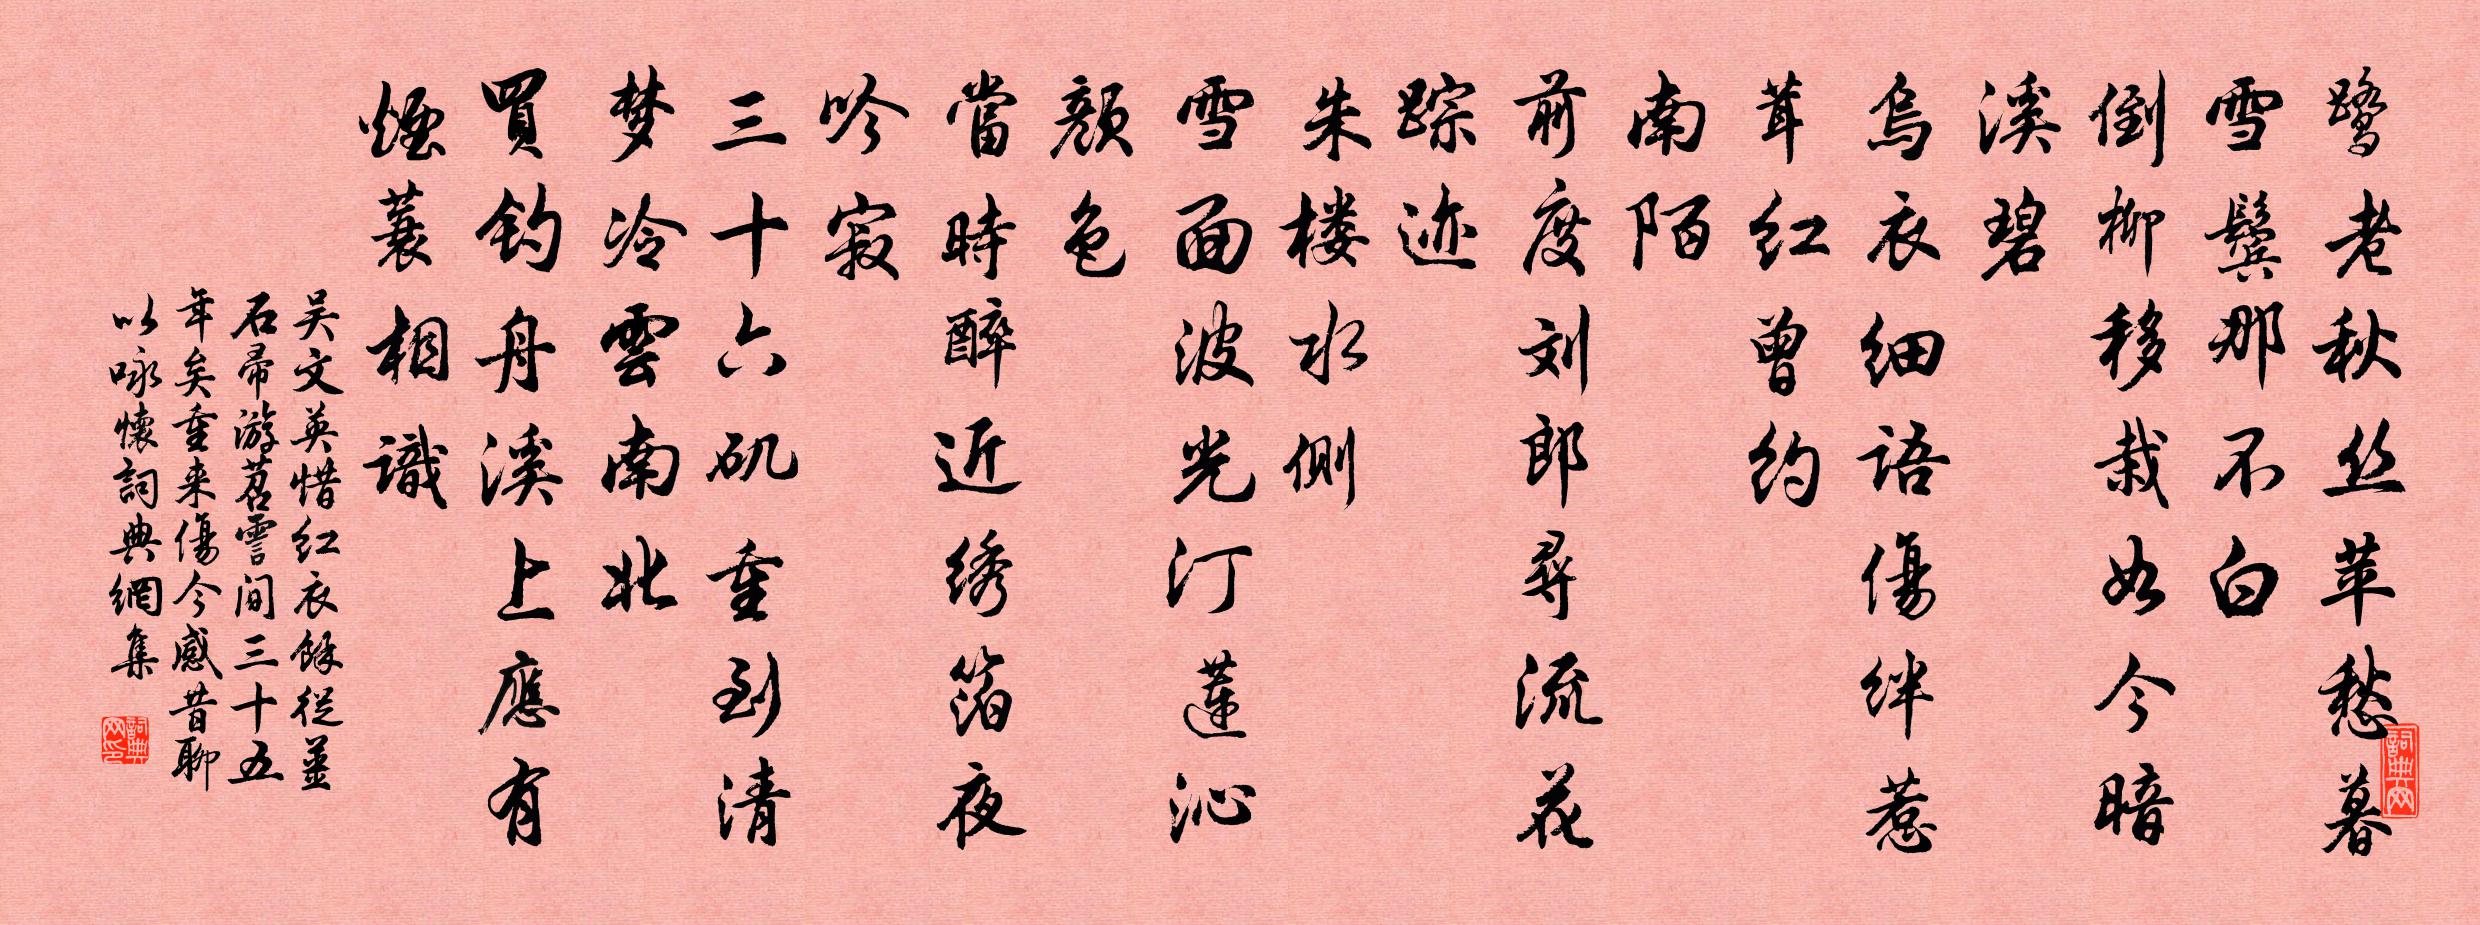 鹭老秋丝苹愁暮
雪鬓那不白
倒柳移栽如今暗
溪碧
烏衣细語傷绊惹
茸红曾约
南陌
前度刘郎尋流花
踪迹
朱楼水側
雪面波光汀莲沁
颜色
當時醉近绣箔夜
吟寂
三十六矶重到清
梦冷雲南北
買钓舟溪上應有
煙蓑相識
吴文英惜红衣餘從薑
石帚游苕霅间三十五
年矣重来傷今感昔聊
以咏懷詞典網集
詞典网
詞典网印